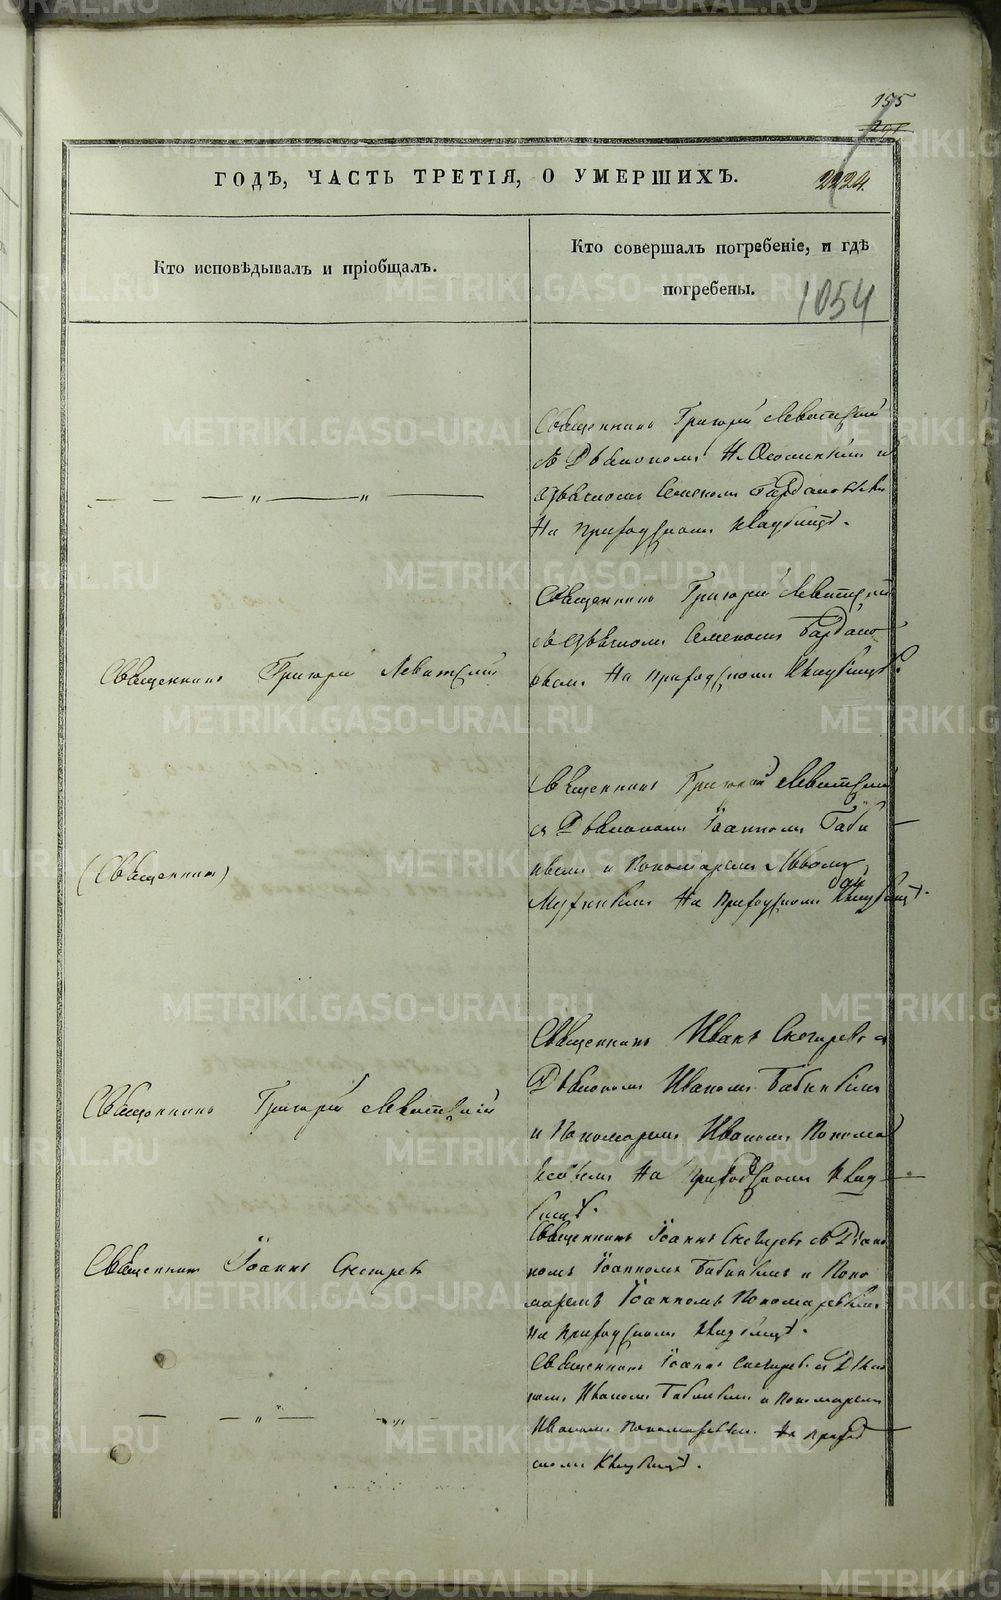 155
ГОДЪ, ЧАСТЬ ТРЕТІЯ, О УМЕРШИХЪ.
2224.
Кто исповѣдывалъ и пріобщалъ.
Кто совершалъ погребеніе, и гдѣ
погребены.
1054
Священникъ Григорій Левитскій
съ Діакономъ и
Семеномъ
На приходскомъ кладбищѣ.
Священникъ Григорій Левитскій
Священникъ Григорій Левитскій
съ Семеномъ
На приходскомъ кладбищѣ.
(Священник)
Священникъ Григорій Левитскій
съ Діакономъ Іоанномъ Баби
и Пономаремъ
На приходскомъ кладбищѣ.
Священникъ Григорій Левитскій
Священникъ Иванъ Снегирев с
Діакономъ Иваномъ Бабинымъ
и Пономаремъ Иваномъ Понома
На приходскомъ клад
бищѣ.
Священникъ Іоаннъ Снегирев
Священникъ Іоаннъ Снегирев съ Діако
номъ Іоанномъ Бабинымъ и Поно
маремъ Іоанномъ Пономаревымъ
на приходскомъ кладбищѣ.
Священникъ Іоаннъ Снегирев съ Діако
номъ Иваномъ Бабинымъ и пономаремъ
Иваномъ Пономаревым. На приход
скомъ кладбищѣ.
METRIKI.GASO-URAL.RU